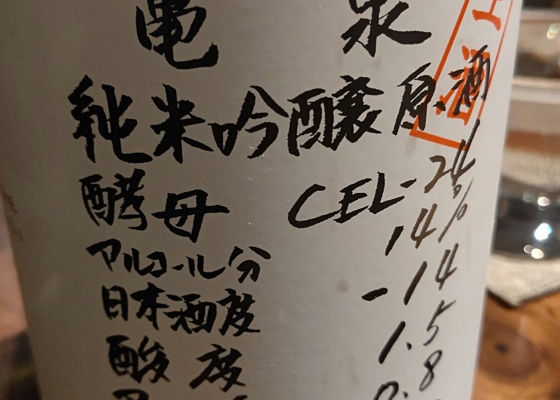 亀泉
純米吟醸原酒
酵母 CEL-24
アルコール分 14%
日本酒度 -14
酸度 1.5